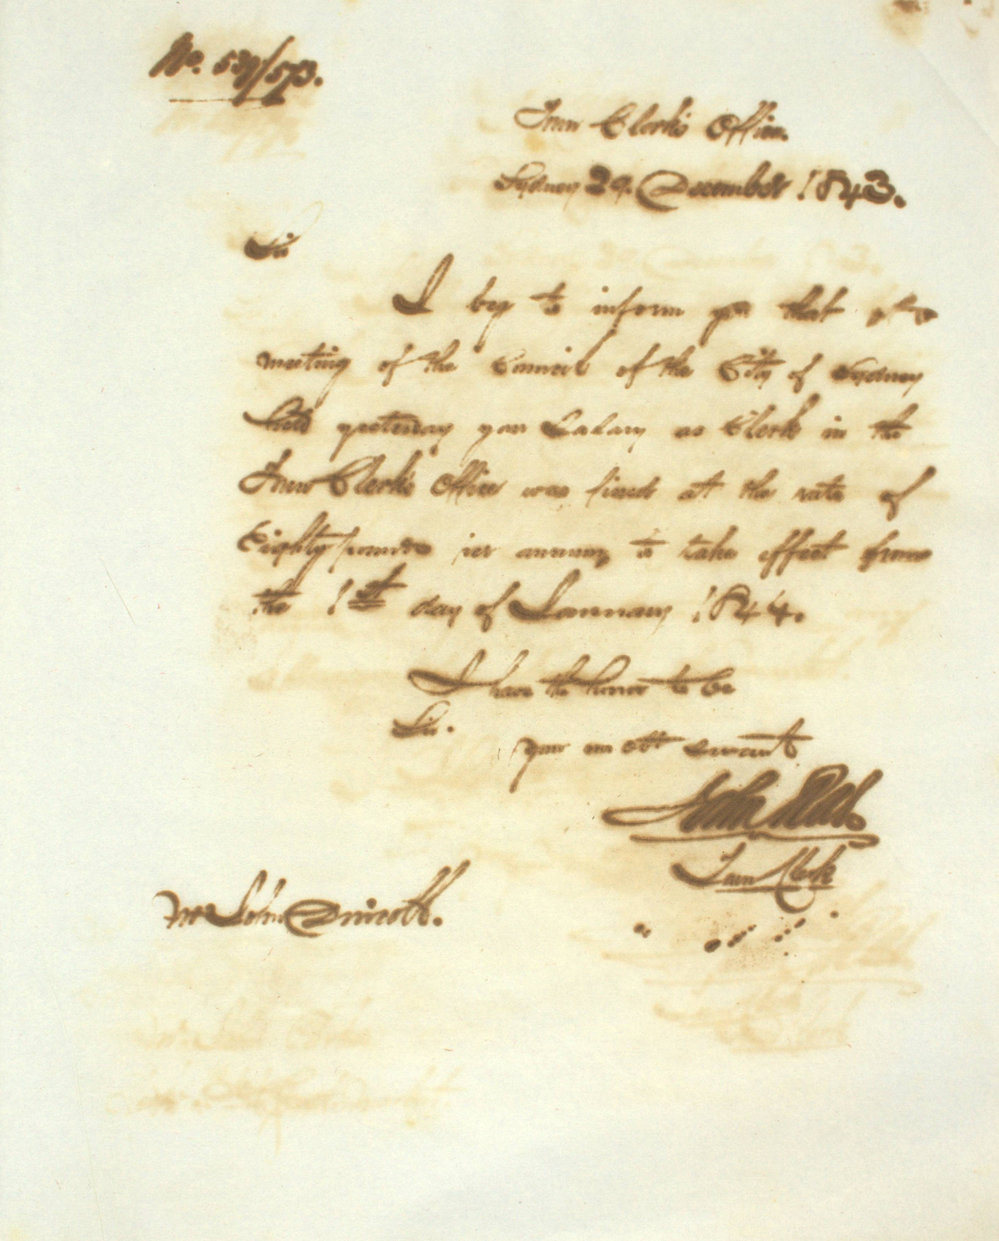 No. 539/573.
Town Clerk's Office.
Sydney 29. December 1843.
Sir
I beg to inform you that at a
meeting of the Council of the City of Sydney
held yesterday your Salary as Clerk in the
Town Clerk's Office was fixed at the rate of
Eighty pounds per annum to take effect from
the 1st day of January 1844.
I have the honor to be
Sir.
your mo obt servant
John Rae.
Town Clerk
Mr John Driscoll.